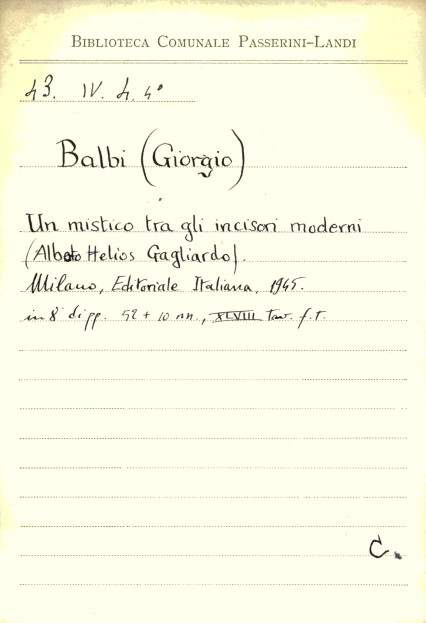 BIBLIOTECA COMUNALE PASSERINI-LANDI
43. IV. 4. 4°
Balbi (Giorgio)
Un mistico tra gli incisori moderni
(Alberto Helios Gagliardo).
Milano, Editoriale Italiana, 1945.
in 8° di pp. 52 + 10 nn., XLVIII tav. f.t.
C.